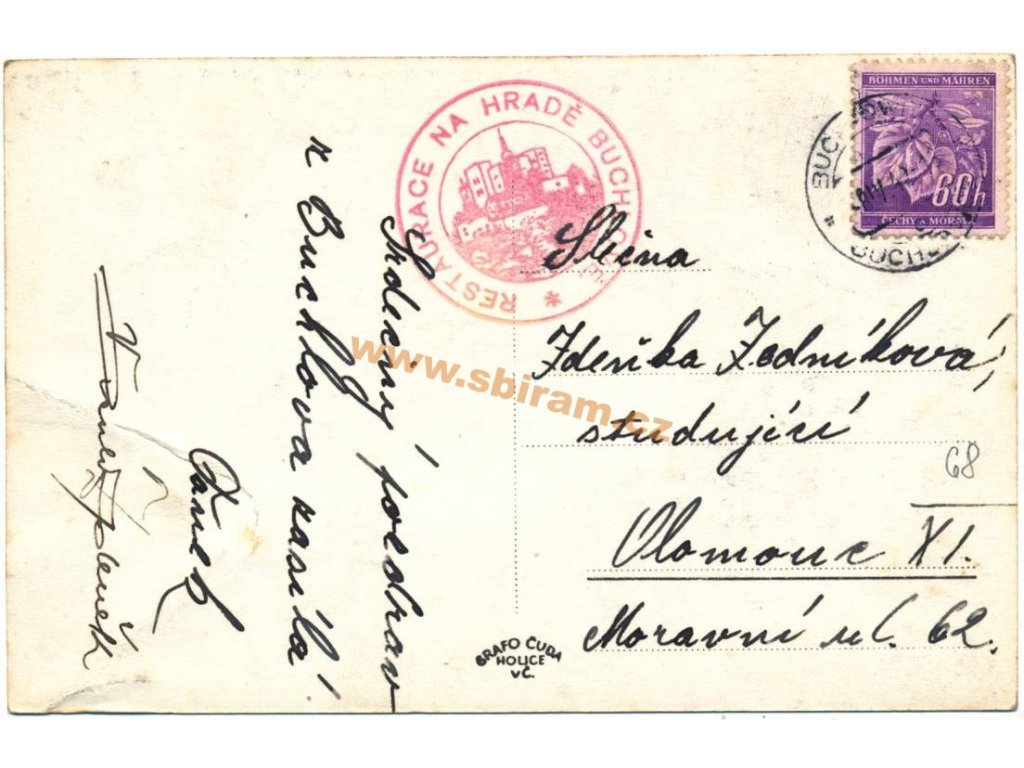 Srdečný pozdrav
z Buchlova zasílá!
RESTAURACE NA HRADĚ BUCHLOVĚ *
BÖHMEN UND MÄHREN
60h
ČECHY A MORAVA
Slečna
Zdeňka Zedníková,
studující
68
Olomouc XI.
Moravní ul. 62.
GRAFO ČUDA
HOLICE
VČ.
www.sbiram.cz